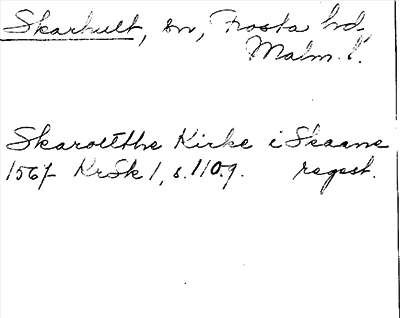 Skarhult, sn, Frosta hd,
Malm. l.
Skaroltthe Kirke i Skaane
1567 KrSk 1, s. 109. regest.